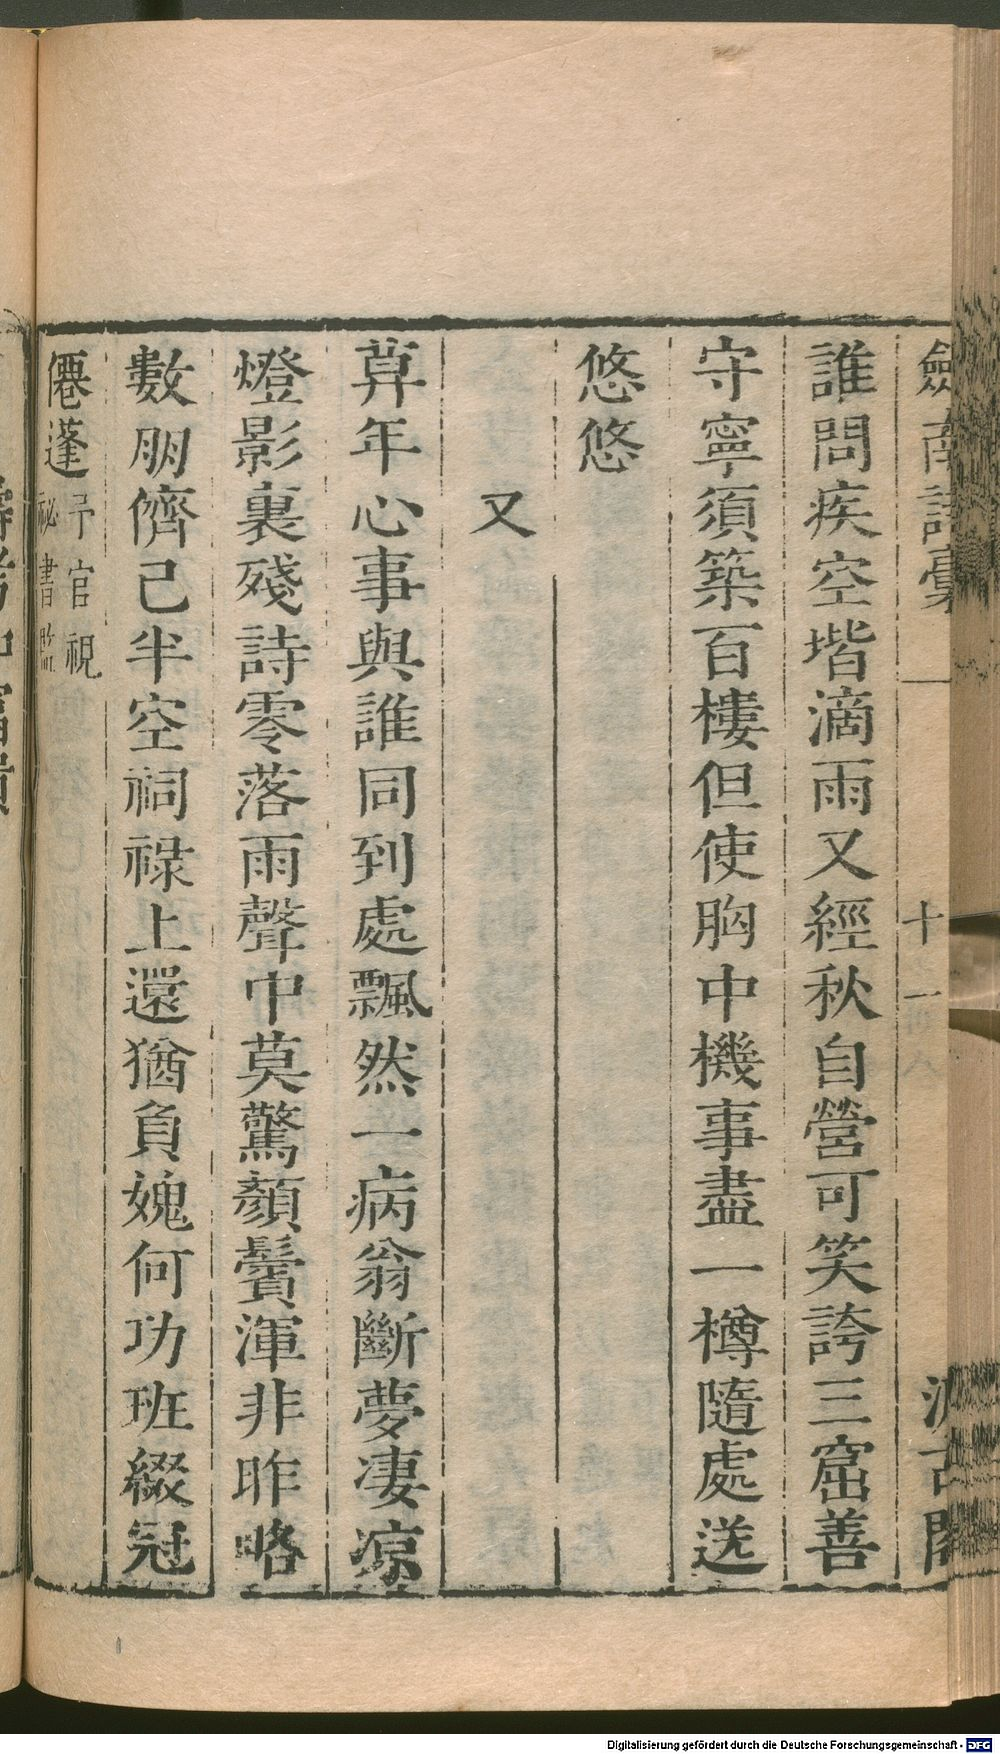 劒南詩稾
一
十一
汲古閣
誰問疾空堦滴雨又經秋自營可笑誇三窟善
守寧須築百樓但使胸中機事盡一樽隨處送
悠悠
又
筭年心事與誰同到處飄然一病翁斷夢凄凉
燈影裏殘詩零落雨聲中莫驚顏鬢渾非昨略
數朋儕己半空祠祿上還猶負媿何功班綴冠
僊蓬
予官視
祕書監
Digitalisierung gefördert durch die Deutsche Forschungsgemeinschaft - DFG